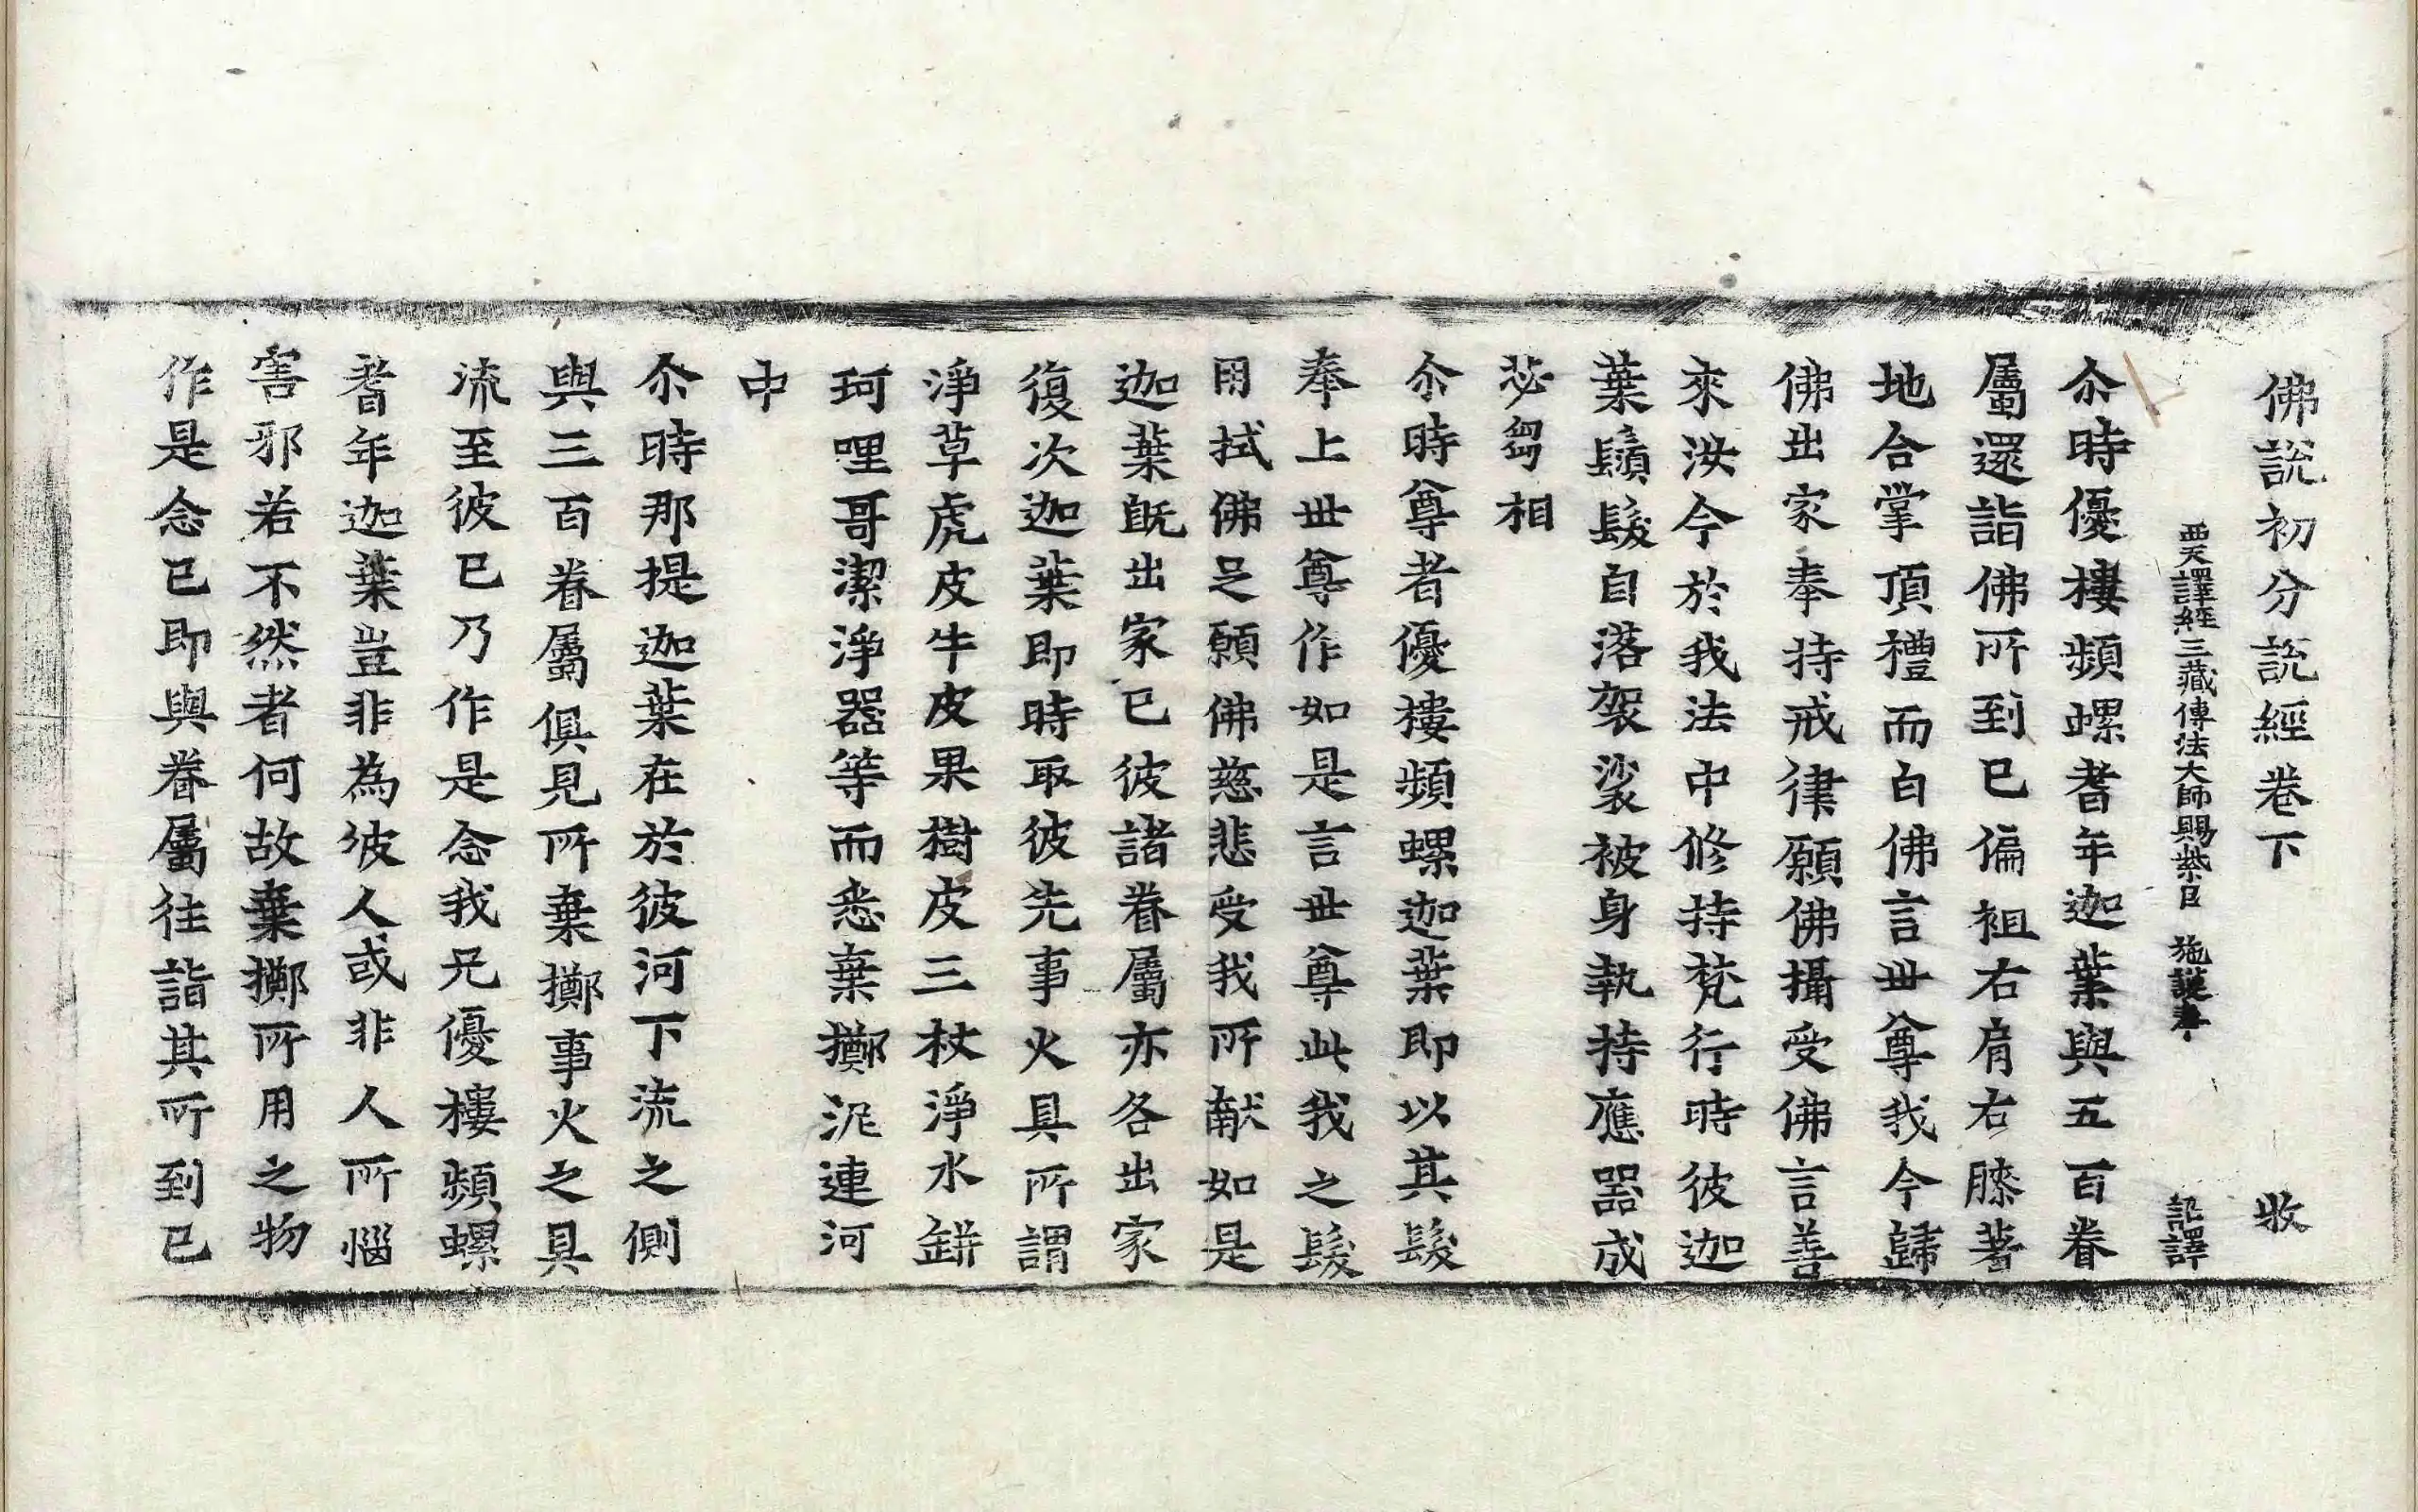 佛說初分說經卷下 收
西天譯經三藏傳法大師賜紫臣 施護奉 詔譯
尒時優樓頻螺耆年迦葉與五百眷
屬還詣佛所到已偏袒右肩右膝著
地合掌頂禮而白佛言世尊我今歸
佛出家奉持戒律願佛攝受佛言善
來汝今於我法中修持梵行時彼迦
葉鬚髮自落袈裟被身執持應器成
苾芻相
尒時尊者優樓頻螺迦葉即以其髮
奉上世尊作如是言世尊此我之髮
用拭佛足願佛慈悲受我所献如是
迦葉旣出家已彼諸眷屬亦各出家
復次迦葉即時取彼先事火具所謂
淨草虎皮牛皮果樹皮三杖淨水缾
珂哩哥潔淨器等而悉棄擲泥連河
中
尒時那提迦葉在於彼河下流之側
與三百眷屬俱見所棄擲事火之具
流至彼已乃作是念我兄優樓頻螺
耆年迦葉豈非為彼人或非人所惱
害邪若不然者何故棄擲所用之物
作是念已即與眷屬往詣其所到已